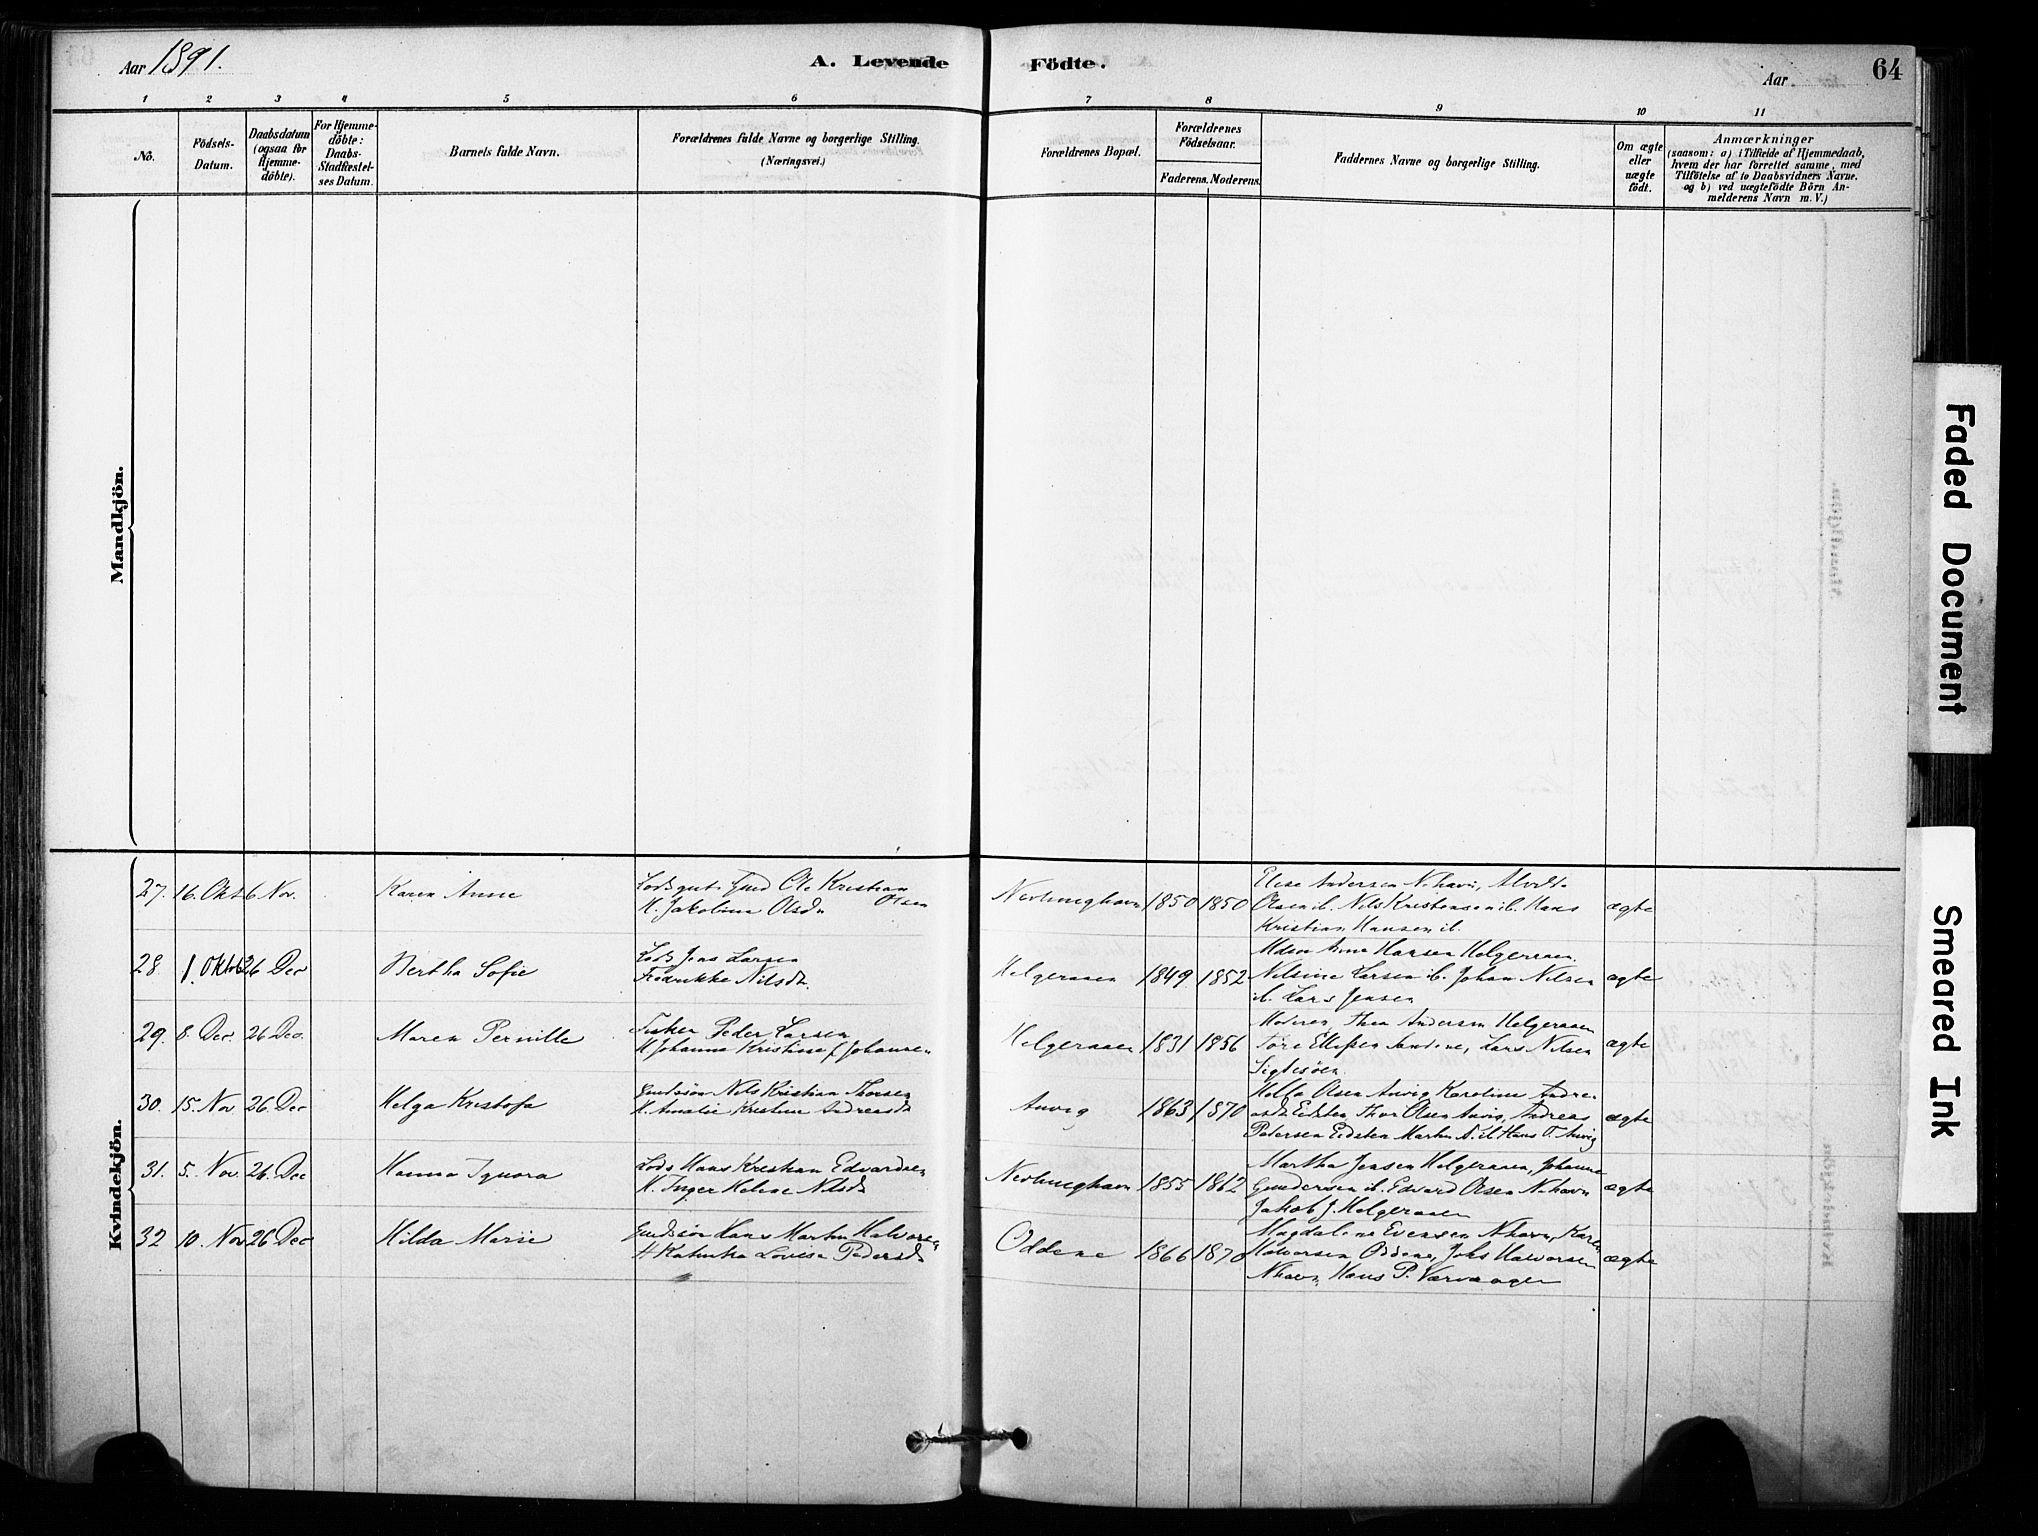 Aar 1891.
A. Levende
Födte.
Aar
64
1 2 3 4 5 6 7 8 9 10 11
No.
Födsels-
Datum.
Daabsdatum
(ogsaa for
Hjemme-
döbte).
For Hjemme-
döbte:
Daabs-
Stadfæstel-
ses Datum.
Barnets fulde Navn.
Forældrenes fulde Navne og borgerlige Stilling.
(Næringsvei.)
Forældrenes Bopæl.
Forældrenes
Födselsaar.
Faderens. Moderens.
Faddernes Navne og borgerlige Stilling.
Om ægte
eller
uægte
födt.
Anmærkninger
(saasom: a) i Tilfælde af Hjemmedaab,
hvem der har forrettet samme, med
Tilföielse af to Daabsvidners Navne.
og b) ved uægtefödte Börn An-
melderens Navn m.V.)
Mandkjön.
Kvindekjön.
27. 16. Okt 6 Nov.
Karen Anne
Ole Kristian
Olsen
H. Jakobine Olsdr
Nevlunghavn 1850 1850
Elise Andersen N.havn,
Olsen ib. Nils Kristensen ib. Hans
Kristian Hansen ib.
ægte
28 1. Oktob 26 Dec
Bertha Sofie
Lods Jens Larsen
Fredrikke Nilsdr.
Helgeraaen 1849 1852
Anne Hansen Helgeraaen.
Nilsine Larsen ib. Johan Nilsen
ib. Lars Jensen
ægte
29. 8. Dec. 26 Dec.
Maren Pernille
Fisker Peder Larsen
H. Johanna Kristine f. Johanne
Helgeraaen 1831 1856
Moderen, Thea Andersen Helgeraaen
Tore Ellefsen Sandene, Lars Nilsen
ægte
30. 15. Nov. 26. Dec
Helga Kristofa
Nils Kristian Thorsen
H. Amalie Kristine Andreasdr
Anvig 1863 1870
Olsen Anvig Karoline Andre-
asdr Eidsten Thor Olsen Anvig, Andreas
Pedersen Eidsten Martin ib. Hans T. Anvig
ægte
31. 5. Nov. 26. Dec
Hanna Ignora
Lods Hans Kristian Edvardsen
H. Inger Helene Nilsdr
Nevlunghavn 1855 1862
Martha Jensen Helgeraaen, Johanne
Gundersen ib. Edvard Olsen N.havn
Jakob J. Helgeraaen
ægte
32 10. Nov 26 Dec
Hilda Marie
Hans Martin Halvorsen
H. Kathinka Lovisse Pedersdr
Oddene 1866 1870
Magdalene Evensen N.havn, Karen
Halvorsen Oddene, Johs Halvorsen
N.havn, Hans P. Værvaagen
ægte
Faded Document
Smeared Ink